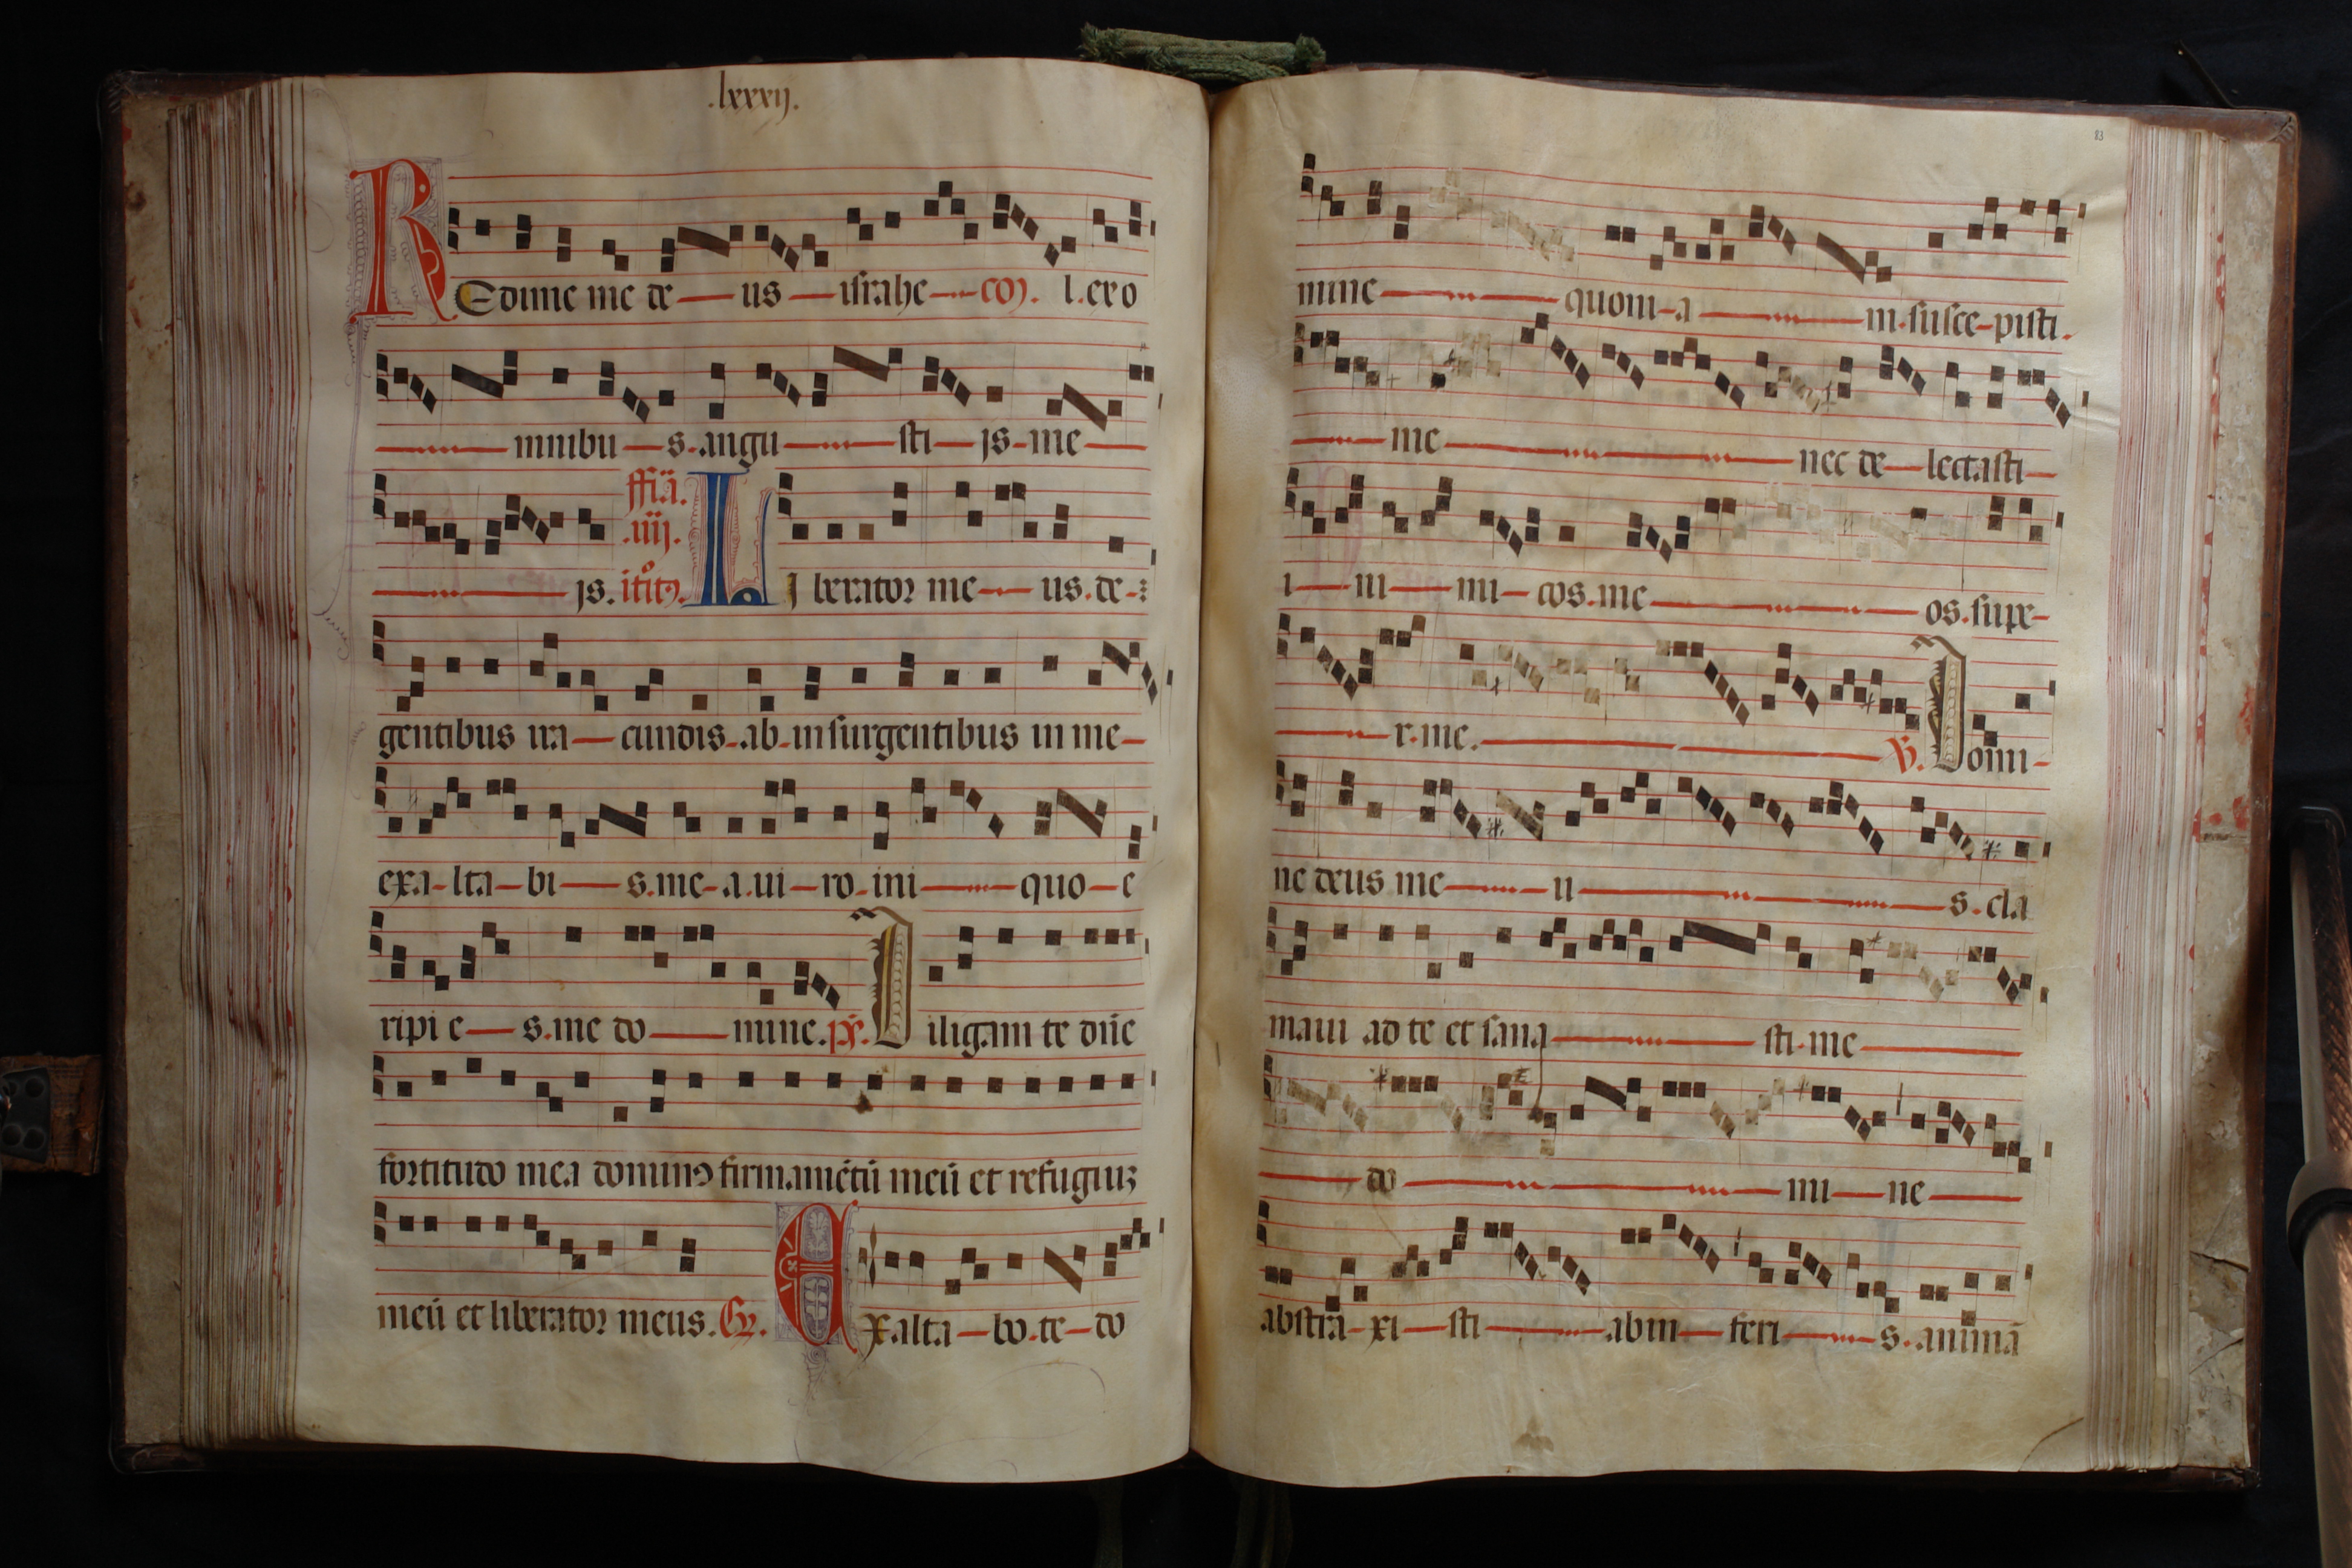 .lxxxij.
REdime me de us israhe co). l. ex o
mnibu s. angu sti js me
js. ffia. .iiij. itito). LI berator me us. de
gentibus ira cundis. ab insurgentibus in me
exa lta bi s. me a. ui ro ini quo e
ripi e s. me do mine. ps. Diligam te dñe
fortitudo mea dominꝰ firmamētū meū et refugiuʒ
meū et liberator meus. Gr. Exalta bo. te do
83
mine quoni a m. susce pisti.
me nec de lectasti
i ni mi cos. me os. supe
r. me. V. Domi
ne deus me u s. cla
maui ad te et sana sti. me
do mi ne
abstra xi sti ab in feri s. animā